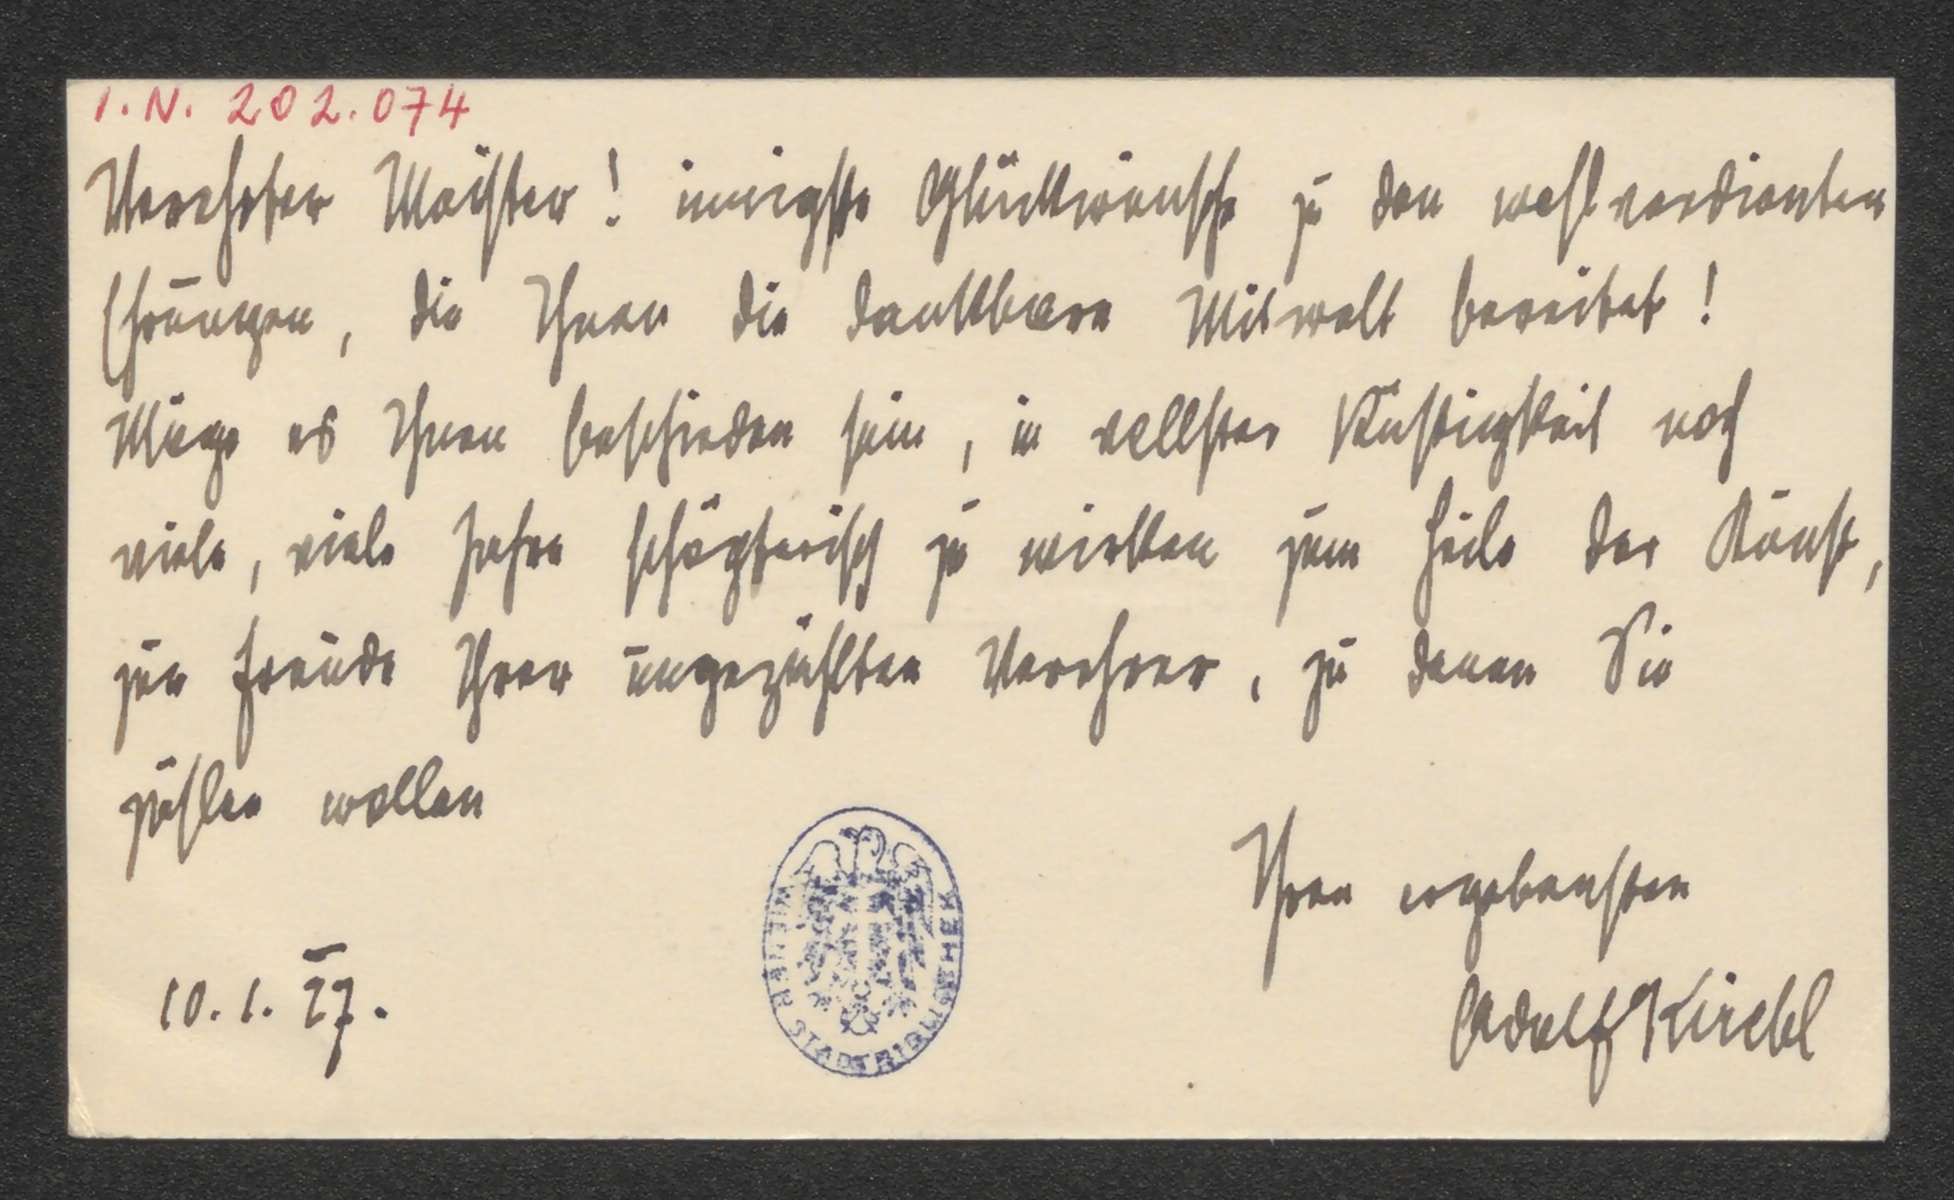 I.N. 202.074
Verehrter Meister! innigste Glückwünsche zu den wohlverdienten
Ehrungen, die Ihnen die dankbare Mitwelt bereitet!
Möge es Ihnen beschieden sein, in vollster Rüstigkeit noch
viele, viele Jahre schöpferisch zu wirken zum Heile der Kunst,
zur Freude Ihrer ungezählten Verehrer, zu denen Sie
zählen wollen
Ihren ergebensten
Adolf Kirchl
10.1.27.
WIENER STADTBIBLIOTHEK